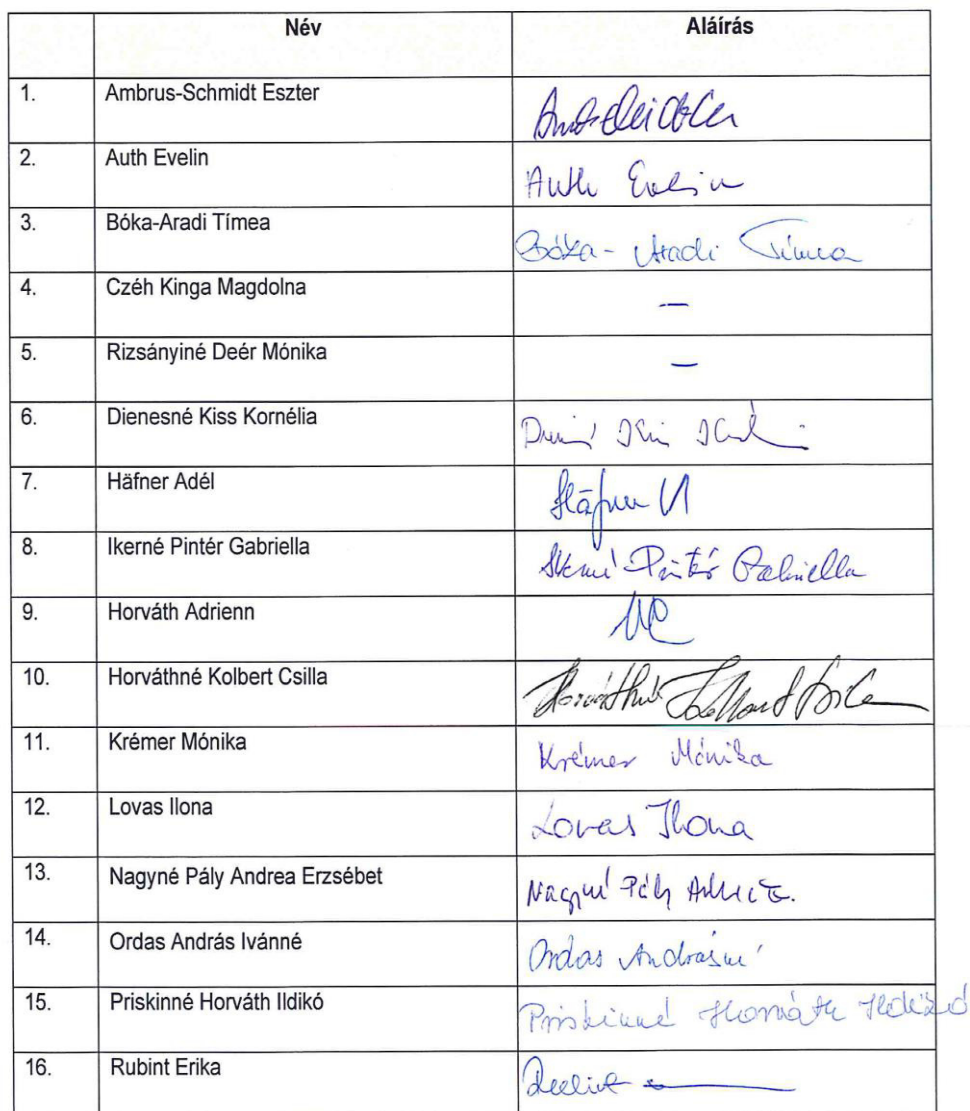 Név Aláírás
1. Ambrus-Schmidt Eszter
2. Auth Evelin Auth Evelin
3. Bóka-Aradi Tímea Bóka-Aradi Tímea
4. Czéh Kinga Magdolna —
5. Rizsányiné Deér Mónika —
6. Dienesné Kiss Kornélia
7. Häfner Adél Häfner
8. Ikerné Pintér Gabriella Ikerné Pintér Gabriella
9. Horváth Adrienn
10. Horváthné Kolbert Csilla Horváthné Kolbert Csilla
11. Krémer Mónika Krémer Mónika
12. Lovas Ilona Lovas Ilona
13. Nagyné Pály Andrea Erzsébet Nagyné Pály Andrea E.
14. Ordas András Ivánné Ordas Andrásné
15. Priskinné Horváth Ildikó Priskinné Horváth Ildikó
16. Rubint Erika